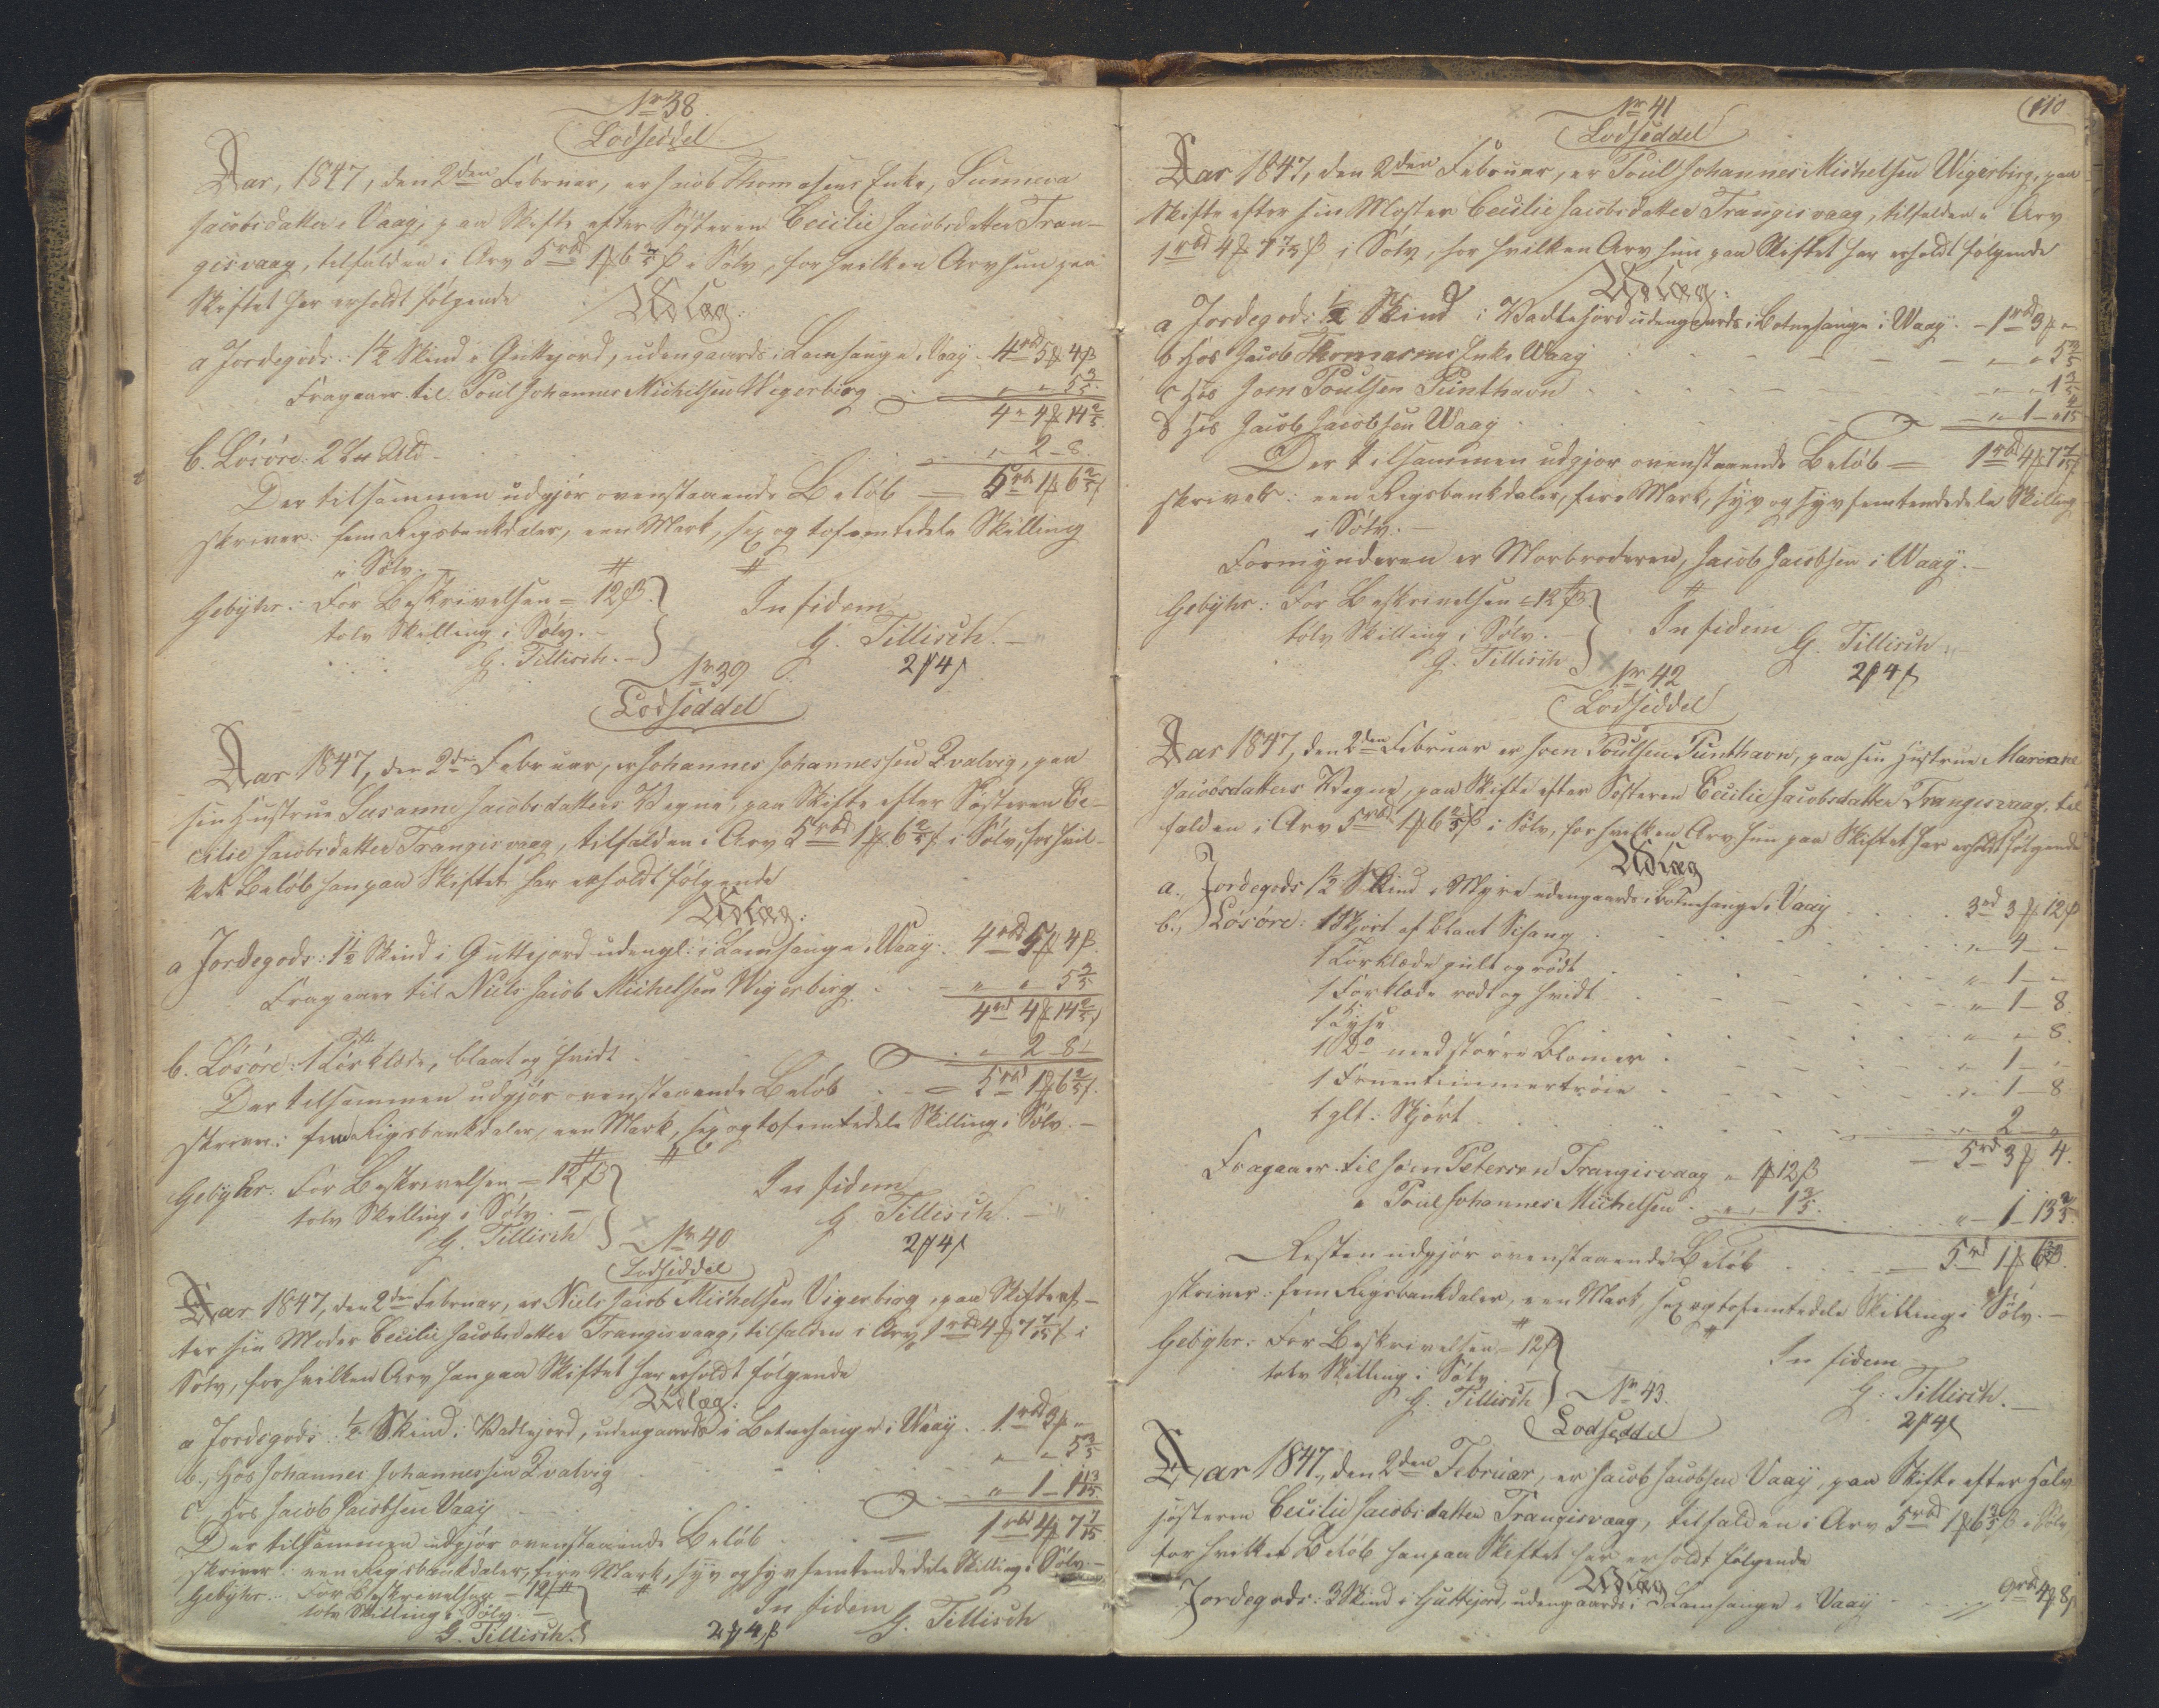 No 38.
Lodseddel
Aar, 1847, den 2den Februar, er Jacob Thomasens Enke, Sunneva
Jacobsdatter i Vaag, paa Skifte efter Søsteren Cecilie Jacobsdatter Tran-
gisvaag, tilfalden i Arv 5 rbd 1 ℳ 6 2/5 β i Sølv, for hvilken Arv hun paa
Skiftet har erholdt følgende
Udlæg:
a Jordegods: 1 1/2 Skind i Guttejord, udengaards i Lamhauge i Vaag. 4 rbd 5 ℳ 4 β
Fragaaer til Poul Johannes Michelsen Wigerbirg " " 5 3/5
4 " 4 ℳ 14 2/5
b. Løsøre: Uld " 2 – 8.
Der tilsammen udgjør ovenstaaende Beløb = 5 rbd 1 ℳ 6 2/5 β
skriver: fem Rigsbankdaler, een Mark, sex og tofemtedele Skilling
i Sølv. –
Gebyhr: For Beskrivelsen = 12 β.
tolv Skilling i Sølv. –
G. Tillisch. –
In fidem
G. Tillisch. –
2 ℳ 4 β
No 39
Lodseddel
Aar 1847, den 2den Februar, er Johannes Johannessen Qvalvig, paa
sin Hustrue Susanne Jacobsdatters Vegne, paa Skifte efter Søsteren Ce-
cilie Jacobsdatter Trangisvaag, tilfalden i Arv 5 rbd 1 ℳ 6 2/5 β i Sølv, for hvil-
ket Beløb han paa Skiftet har erholdt følgende
Udlæg:
a Jordegods: 1 1/2 Skind i Guttejord udengl: i Lamhauge i Vaag. 4 rbd 5 ℳ 4 β.
Fragaaer til Niels Jacob Michelsen Wigerbirg " " 5 3/5
4 rd 4 ℳ 14 2/5 β
b. Løsøre: 1 Tørklæde, blaat og hvidt " 2 – 8 –
Der tilsammen udgjør ovenstaaende Beløb = 5 rbd 1 ℳ 6 2/5 β.
skriver: fem Rigsbankdaler, een Mark, sex og tofemtedele Skilling i Sølv. –
Gebyhr: For Beskrivelsen = 12 β
tolv Skilling i Sølv. –
G. Tillisch
In fidem
G Tillisch. –
2 ℳ 4 β
No 40
Lodseddel
Aar 1847, den 2den Februar, er Niels Jacob Michelsen Vigerbirg, paa Skifte ef-
ter sin Moder Cecilie Jacobsdatter Trangisvaag, tilfalden i Arv 1 rbd 4 ℳ 7 7/15 β i
Sølv, for hvilken Arv han paa Skiftet har erholdt følgende
Udlæg:
a Jordegods: 1/2 Skind i Vadlejord, udengaards i Botnehauge i Vaag. 1 rbd 3 ℳ "
b., Hos Johannes Johannessen Qvalvig " " 5 3/5
c., Hos Jacob Jacobsen Vaag " 1 – 1 13/15
Der tilsammen udgjør ovenstaaende Beløb = 1 rbd 4 ℳ 7 7/15
skriver: een Rigsbankdaler, fire Mark, syv og syv femtendedele Skilling i Sølv. –
Gebyhr: For Beskrivelsen = 12 β
tolv Skilling i Sølv. –
G. Tillisch.
2 ℳ 4 β
In fidem
G. Tillisch
110
No 41
Lodseddel
Aar 1847, den 2den Februar, er Poul Johannes Michelsen Wigerbirg, paa
Skifte efter sin Moster Cecilie Jacobsdatter Trangisvaag, tilfalden i Arv
1 rbd 4 ℳ 7 7/15 β i Sølv, for hvilken Arv hun paa Skiftet har erholdt følgende
Udlæg:
a Jordegods 1/2 Skind i Vadlejord udengaards i Botnehauge i Waag. – 1 rbd 3 ℳ "
b Hos Jacob Thomasens Enke Waag " " 5 3/5
c Hos Joen Poulsen Punthavn " " 1 3/5
d Hos Jacob Jacobsen Waag " 1 – " 4/15
Der tilsammen udgjør ovenstaaende Beløb = 1 rbd 4 ℳ 7 7/15 β
skriver: een Rigsbankdaler, fire Mark, syv og syv femtendedele Skilling
i Sølv. –
Formynderen er Morbroderen, Jacob Jacobsen i Waag. –
Gebyhr: For Beskrivelsen = 12 β.
tolv Skilling i Sølv. –
G. Tillisch
In fidem
G. Tillisch
2 ℳ 4 β
No 42
Lodseddel
Aar 1847, den 2den Februar er Joen Poulsen Punthavn, paa sin Hustrue Marianne
Jacobsdatters Vegne, paa Skifte efter Søsteren Cecilie Jacobsdatter Trangisvaag, til
falden i Arv 5 rbd 1 ℳ 6 2/5 β i Sølv, for hvilken Arv hun paa Skiftet har erholdt følgende
Udlæg
a., Jordegods 1/2 Skind i Myre udengaards i Botnehauge i Vaag 3 rd 3 ℳ 12 β
b., Løsøre: 1 Skjørt af blaat " 4 – "
1 Tørklæde guult og rødt " 1 – "
1 Forklæde rødt og hvidt " 1 – 8
1 Lyse " " 8.
1 Do med større Blomer " 1 – "
1 Fruentimmertrøie " 1 – 8
1 glt. Skjørt " 2 – "
5 rd 3 ℳ 4.
Fragaaer til Joen Petersen Trangisvaag " 1 ℳ 12 β
" Poul Johannes Michelsen " " 1 3/5 " 1 13 3/5
Resten udgjør ovenstaaende Beløb = 5 rd 1 ℳ 6 2/5 β.
skriver: fem Rigsbankdaler, een Mark, sex og tofemtedele Skilling i Sølv. –
Gebyhr: For Beskrivelsen = 12 β
tolv Skilling i Sølv
G. Tillisch
In fidem
G. Tillisch. –
2 ℳ 4 β
No 43.
Lodseddel
Aar 1847, den 2den Februar, er Jacob Jacobsen Vaag, paa Skifte efter Halv-
søsteren Cecilie Jacobsdatter Trangisvaag, tilfalden i Arv 5 rbd 1 ℳ 6 2/5 β i Sølv
for hvilket Beløb han paa Skiftet har erholdt følgende
Udlæg
Jordegods: 3 Skind i Guttejord, udengaards i Lamhauge i Vaag 9 rbd 4 ℳ 8 β